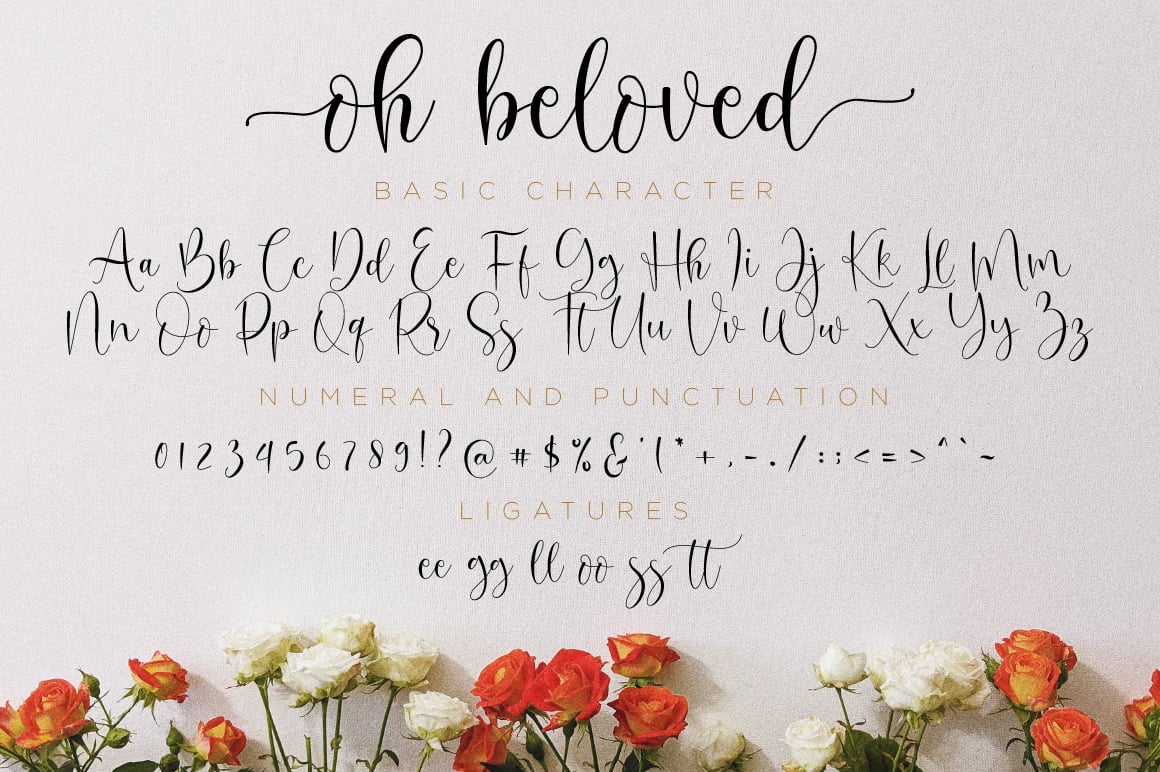 oh beloved
BASIC CHARACTER
Aa Bb Cc Dd Ee Ff Gg Hh Ii Jj Kk Ll Mm
Nn Oo Pp Qq Rr Ss Tt Uu Vv Ww Xx Yy Zz
NUMERAL AND PUNCTUATION
0123456789!?@#$%&'(*+,-./:;<=>^`~
LIGATURES
ee gg ll oo ss tt